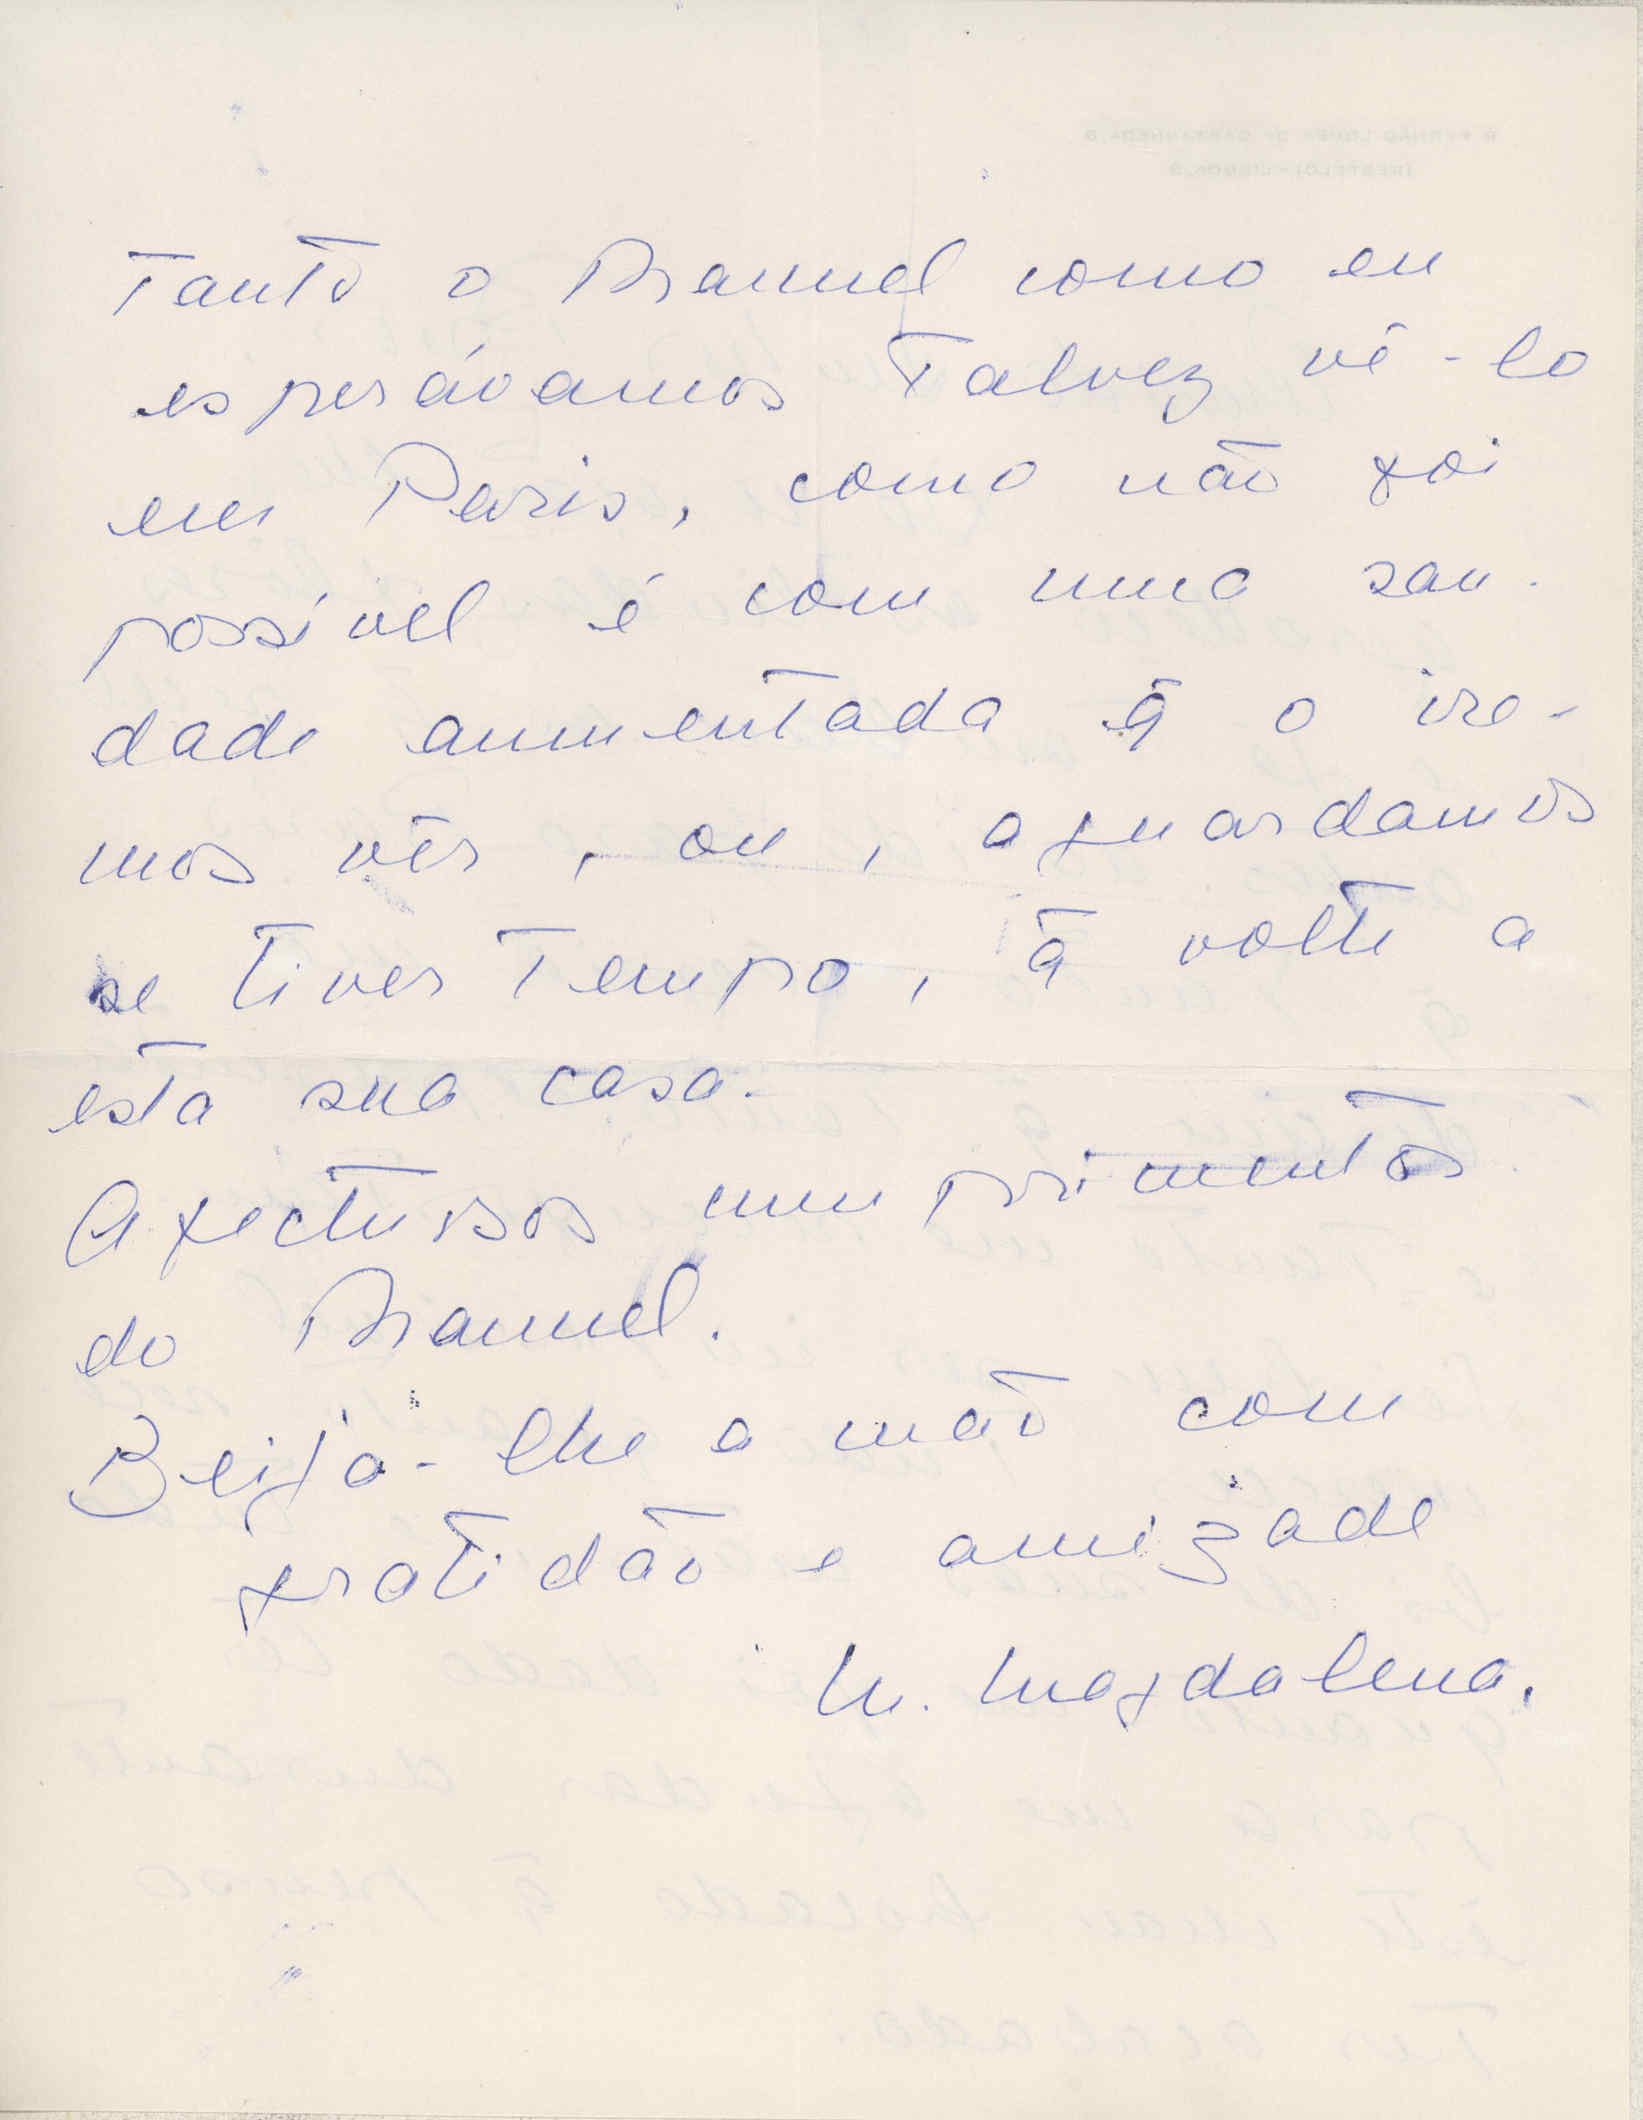 Tanto o Manuel como eu
esperávamos talvez vê-lo
em Paris, como não foi
possível é com uma sau-
dade aumentada q̃ o ire-
mos vêr, ou, aguardamos
se tiver tempo, q̃ volte a
esta sua casa.
Afectuosos cumprimentos
do Manuel.
Beija-lhe a mão com
gratidão e amizade
M. Magdalena.